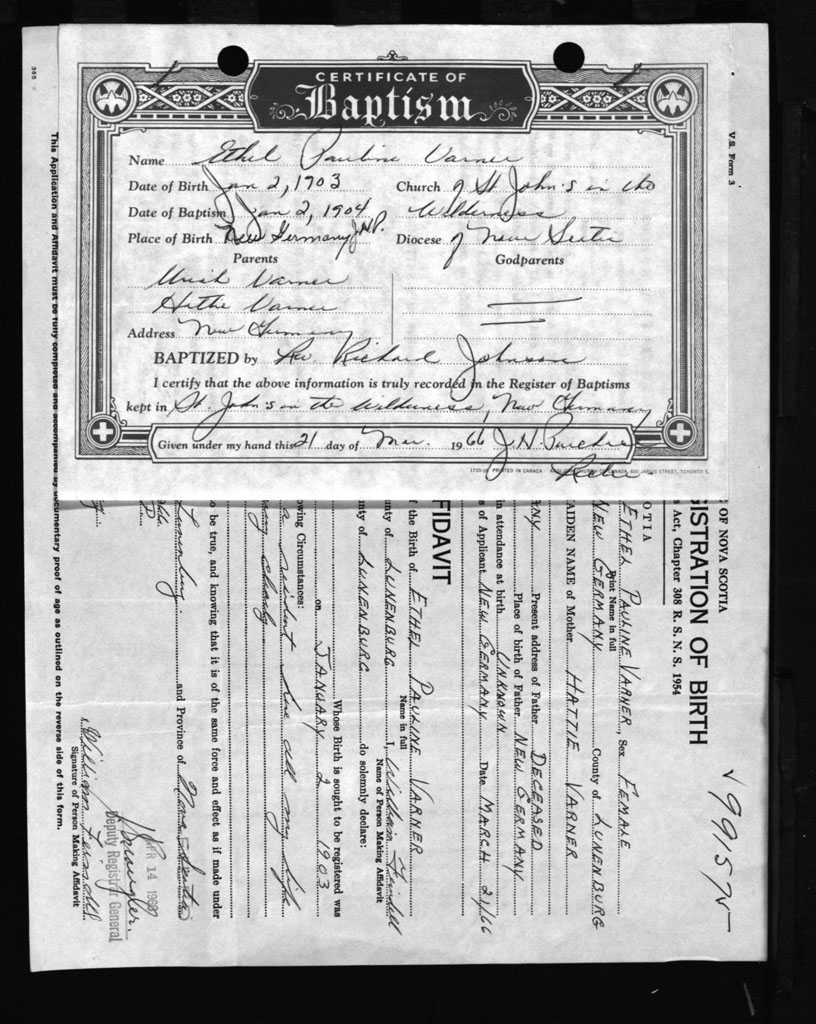 CERTIFICATE OF
Baptism
Name Ethel Pauline Varner
Date of Birth Jan 2, 1903 Church of St John's in the
Date of Baptism Jan 2, 1904 Wilderness
Place of Birth New Germany J.N.P. Diocese of Nova Scotia
Parents Godparents
Uriah Varner
Hattie Varner
Address New Germany
BAPTIZED by Rev Richard Johnson
I certify that the above information is truly recorded in the Register of Baptisms
kept in St. John's in the Wilderness, New Germany
Given under my hand this 21 day of Mar. 1966 J.N.
1720-56 PRINTED IN CANADA
V.S. Form 3
OF NOVA SCOTIA
GISTRATION OF BIRTH
s Act, Chapter 308 R. S. N. S. 1954
V 991575
OTIA
ETHEL PAULINE VARNER, Sex FEMALE
Print Name in full
NEW GERMANY County of LUNENBURG
AIDEN NAME of Mother HATTIE VARNER
Present address of Father DECEASED
ANY Place of birth of Father NEW GERMANY
in attendance at birth UNKNOWN
s of Applicant NEW GERMANY Date MARCH 21/66
FIDAVIT
f the Birth of ETHEL PAULINE VARNER
Name in full
unty of LUNENBURG I, William
Name of Person Making Affidavit
nty of LUNENBURG do solemnly declare:
Whose Birth is sought to be registered was
on JANUARY 2 1903
owing Circumstances:
a resident here all my life
very closely
o be true, and knowing that it is of the same force and effect as if made under
Lunenburg and Province of Nova Scotia
APR 14 1966
Deputy Registrar General
William
Signature of Person Making Affidavit
This Application and Affidavit must be fully completed and accompanied by documentary proof of age as outlined on the reverse side of this form.